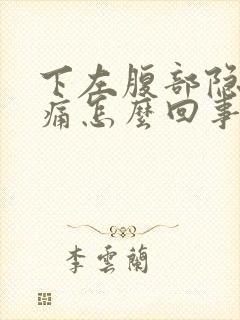 下左腹部隐
痛怎麽回事
李雲蘭